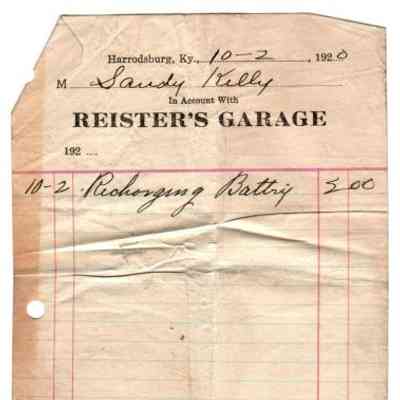 Harrodsburg, Ky., 10-2, 1920
M Sandy Kelly
In Account With
REISTER'S GARAGE
192 ....
10-2 Recharging Battry 2 00